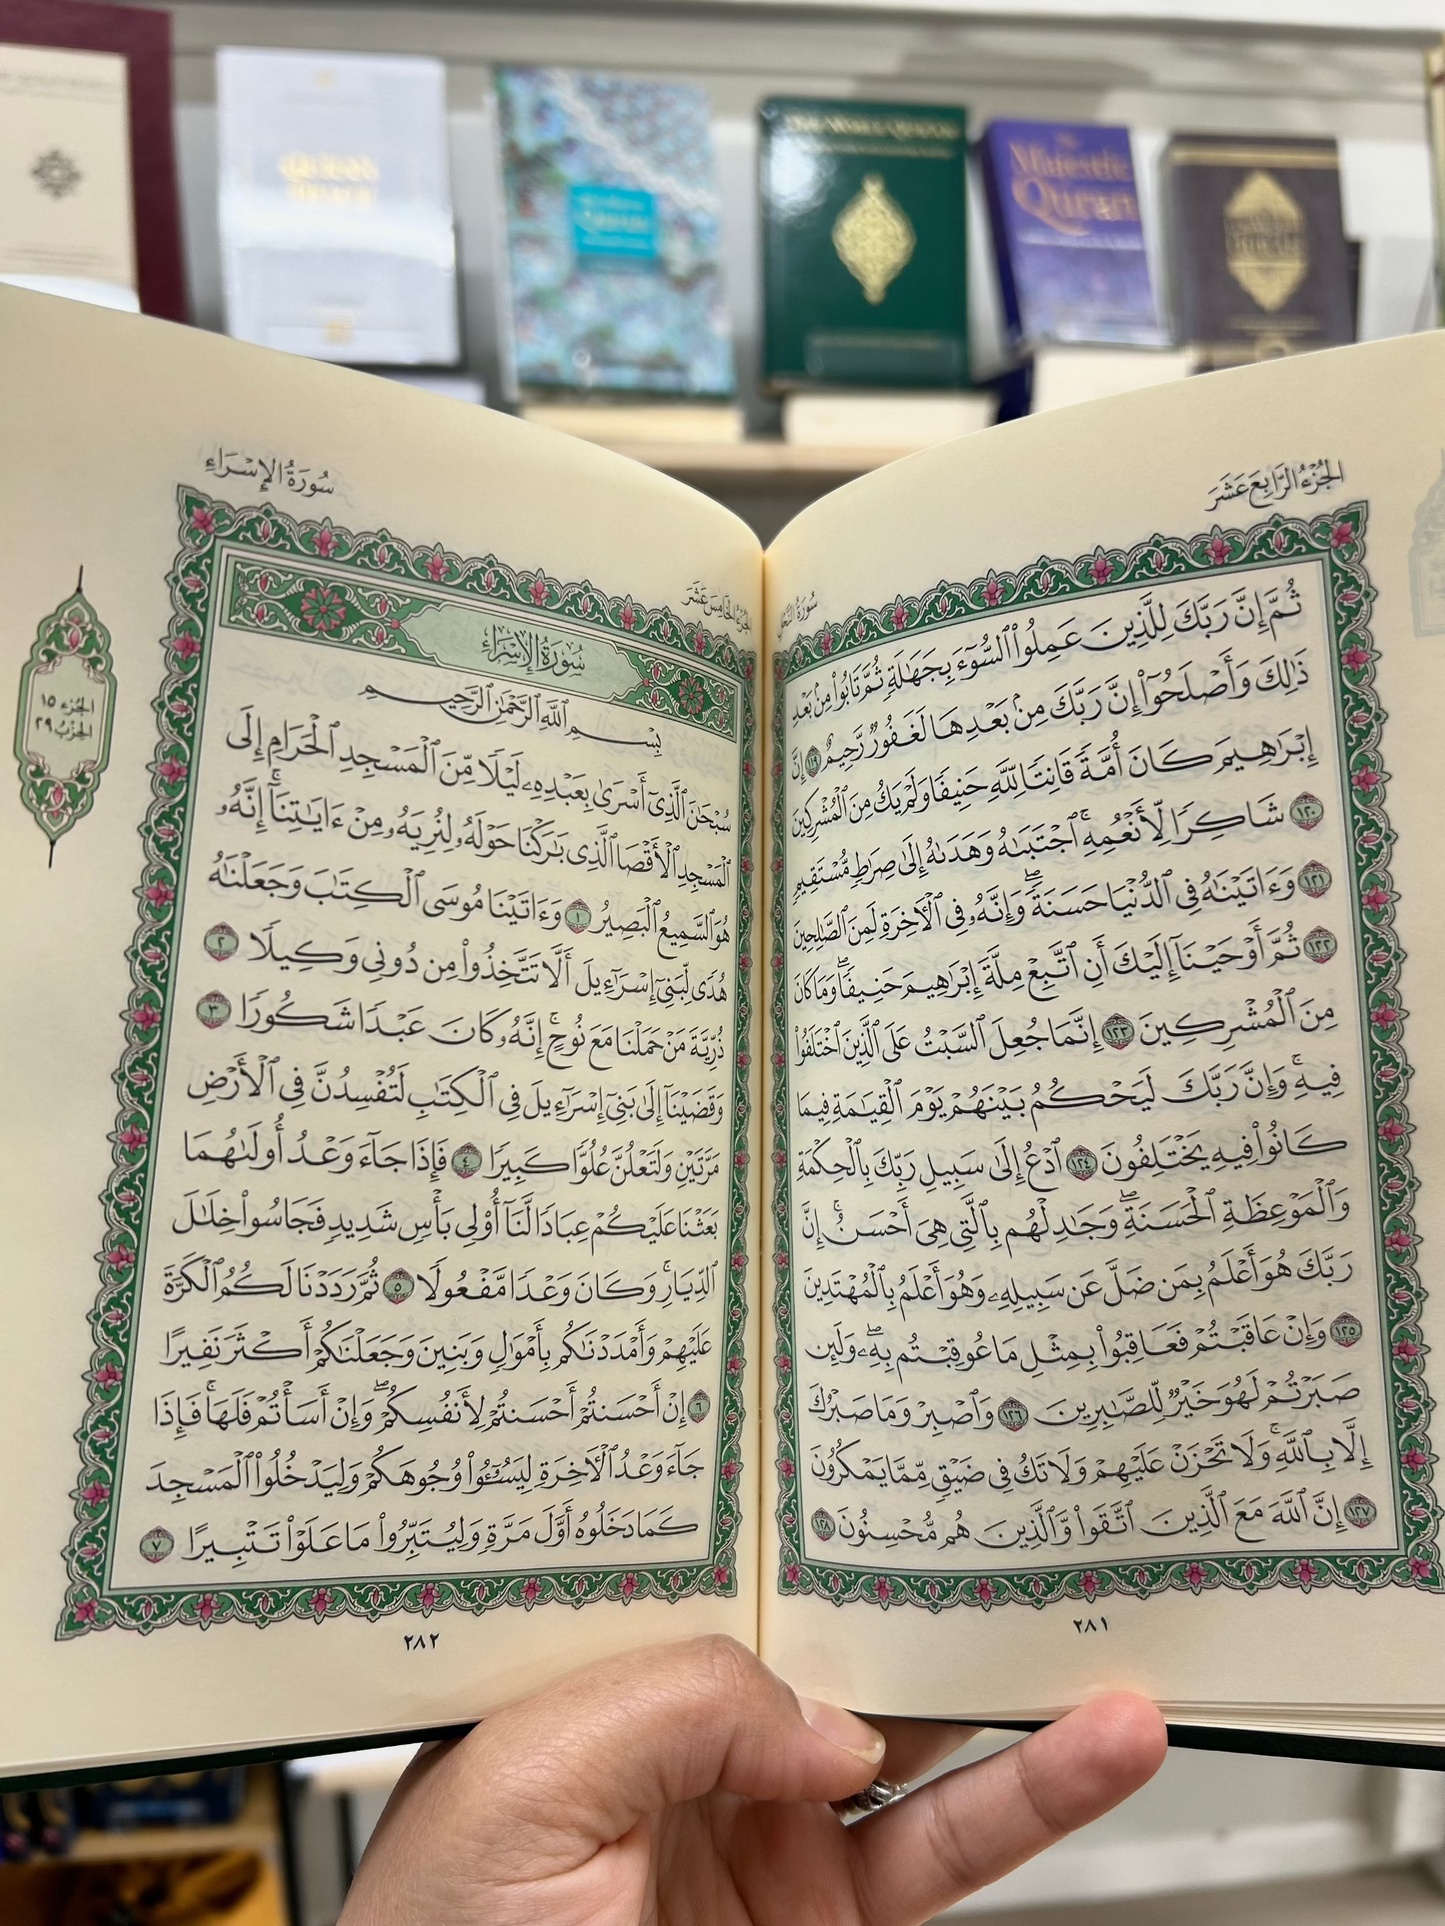 QURAN
Quran
THE NOBLE QURAN
The
Majestic
Quran
الجُزْءُ الرَّابِعَ عَشَرَ
سُورَةُ النَّحْلِ
ثُمَّ إِنَّ رَبَّكَ لِلَّذِينَ عَمِلُوا۟ ٱلسُّوٓءَ بِجَهَٰلَةٍ ثُمَّ تَابُوا۟ مِنۢ بَعْدِ
ذَٰلِكَ وَأَصْلَحُوٓا۟ إِنَّ رَبَّكَ مِنۢ بَعْدِهَا لَغَفُورٌ رَّحِيمٌ ١١٩ إِنَّ
إِبْرَٰهِيمَ كَانَ أُمَّةً قَانِتًا لِّلَّهِ حَنِيفًا وَلَمْ يَكُ مِنَ ٱلْمُشْرِكِينَ
١٢٠ شَاكِرًا لِّأَنْعُمِهِ ۚ ٱجْتَبَىٰهُ وَهَدَىٰهُ إِلَىٰ صِرَٰطٍ مُّسْتَقِيمٍ
١٢١ وَءَاتَيْنَٰهُ فِى ٱلدُّنْيَا حَسَنَةً ۖ وَإِنَّهُۥ فِى ٱلْءَاخِرَةِ لَمِنَ ٱلصَّٰلِحِينَ
١٢٢ ثُمَّ أَوْحَيْنَآ إِلَيْكَ أَنِ ٱتَّبِعْ مِلَّةَ إِبْرَٰهِيمَ حَنِيفًا ۖ وَمَا كَانَ
مِنَ ٱلْمُشْرِكِينَ ١٢٣ إِنَّمَا جُعِلَ ٱلسَّبْتُ عَلَى ٱلَّذِينَ ٱخْتَلَفُوا۟
فِيهِ ۚ وَإِنَّ رَبَّكَ لَيَحْكُمُ بَيْنَهُمْ يَوْمَ ٱلْقِيَٰمَةِ فِيمَا
كَانُوا۟ فِيهِ يَخْتَلِفُونَ ١٢٤ ٱدْعُ إِلَىٰ سَبِيلِ رَبِّكَ بِٱلْحِكْمَةِ
وَٱلْمَوْعِظَةِ ٱلْحَسَنَةِ ۖ وَجَٰدِلْهُم بِٱلَّتِى هِىَ أَحْسَنُ ۚ إِنَّ
رَبَّكَ هُوَ أَعْلَمُ بِمَن ضَلَّ عَن سَبِيلِهِۦ وَهُوَ أَعْلَمُ بِٱلْمُهْتَدِينَ
١٢٥ وَإِنْ عَاقَبْتُمْ فَعَاقِبُوا۟ بِمِثْلِ مَا عُوقِبْتُم بِهِۦ ۖ وَلَئِن
صَبَرْتُمْ لَهُوَ خَيْرٌ لِّلصَّٰبِرِينَ ١٢٦ وَٱصْبِرْ وَمَا صَبْرُكَ
إِلَّا بِٱللَّهِ ۚ وَلَا تَحْزَنْ عَلَيْهِمْ وَلَا تَكُ فِى ضَيْقٍ مِّمَّا يَمْكُرُونَ
١٢٧ إِنَّ ٱللَّهَ مَعَ ٱلَّذِينَ ٱتَّقَوا۟ وَّٱلَّذِينَ هُم مُّحْسِنُونَ ١٢٨
٢٨١
الجُزْءُ الخَامِسَ عَشَرَ
سُورَةُ الإِسْرَاءِ
الجُزء ١٥
الحِزْبُ ٢٩
سُورَةُ الإِسْرَاءِ
بِسْمِ ٱللَّهِ ٱلرَّحْمَٰنِ ٱلرَّحِيمِ
سُبْحَٰنَ ٱلَّذِىٓ أَسْرَىٰ بِعَبْدِهِۦ لَيْلًا مِّنَ ٱلْمَسْجِدِ ٱلْحَرَامِ إِلَى
ٱلْمَسْجِدِ ٱلْأَقْصَا ٱلَّذِى بَٰرَكْنَا حَوْلَهُۥ لِنُرِيَهُۥ مِنْ ءَايَٰتِنَآ ۚ إِنَّهُۥ
هُوَ ٱلسَّمِيعُ ٱلْبَصِيرُ ١ وَءَاتَيْنَا مُوسَى ٱلْكِتَٰبَ وَجَعَلْنَٰهُ
هُدًى لِّبَنِىٓ إِسْرَٰٓءِيلَ أَلَّا تَتَّخِذُوا۟ مِن دُونِى وَكِيلًا ٢
ذُرِّيَّةَ مَنْ حَمَلْنَا مَعَ نُوحٍ ۚ إِنَّهُۥ كَانَ عَبْدًا شَكُورًا ٣
وَقَضَيْنَآ إِلَىٰ بَنِىٓ إِسْرَٰٓءِيلَ فِى ٱلْكِتَٰبِ لَتُفْسِدُنَّ فِى ٱلْأَرْضِ
مَرَّتَيْنِ وَلَتَعْلُنَّ عُلُوًّا كَبِيرًا ٤ فَإِذَا جَآءَ وَعْدُ أُولَىٰهُمَا
بَعَثْنَا عَلَيْكُمْ عِبَادًا لَّنَآ أُو۟لِى بَأْسٍ شَدِيدٍ فَجَاسُوا۟ خِلَٰلَ
ٱلدِّيَارِ ۚ وَكَانَ وَعْدًا مَّفْعُولًا ٥ ثُمَّ رَدَدْنَا لَكُمُ ٱلْكَرَّةَ
عَلَيْهِمْ وَأَمْدَدْنَٰكُم بِأَمْوَٰلٍ وَبَنِينَ وَجَعَلْنَٰكُمْ أَكْثَرَ نَفِيرًا
٦ إِنْ أَحْسَنتُمْ أَحْسَنتُمْ لِأَنفُسِكُمْ ۖ وَإِنْ أَسَأْتُمْ فَلَهَا ۚ فَإِذَا
جَآءَ وَعْدُ ٱلْءَاخِرَةِ لِيَسُۥٓـُٔوا۟ وُجُوهَكُمْ وَلِيَدْخُلُوا۟ ٱلْمَسْجِدَ
كَمَا دَخَلُوهُ أَوَّلَ مَرَّةٍ وَلِيُتَبِّرُوا۟ مَا عَلَوْا۟ تَتْبِيرًا ٧
٢٨٢